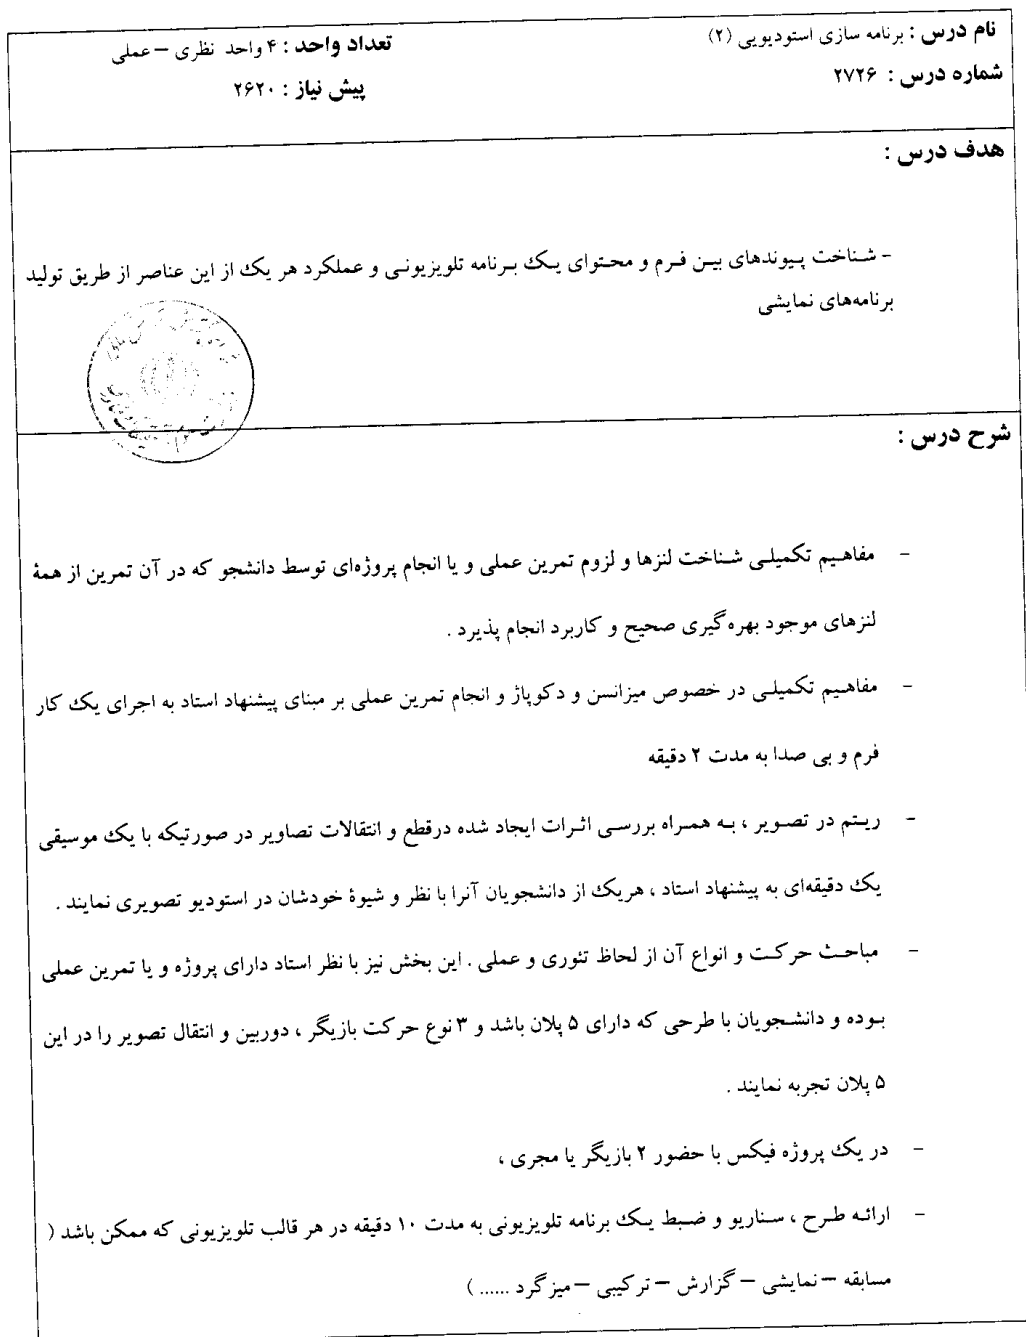 نام درس : برنامه سازی استودیویی (۲)
تعداد واحد : ۴ واحد نظری – عملی
شماره درس : ۲۷۲۶
پیش نیاز : ۲۶۲۰
هدف درس :
- شناخت پیوندهای بین فرم و محتوای یک برنامه تلویزیونی و عملکرد هر یک از این عناصر از طریق تولید
برنامه‌های نمایشی
شرح درس :
- مفاهیم تکمیلی شناخت لنزها و لزوم تمرین عملی و یا انجام پروژه‌ای توسط دانشجو که در آن تمرین از همهٔ
لنزهای موجود بهره‌گیری صحیح و کاربرد انجام پذیرد .
- مفاهیم تکمیلی در خصوص میزانسن و دکوپاژ و انجام تمرین عملی بر مبنای پیشنهاد استاد به اجرای یک کار
فرم و بی صدا به مدت ۲ دقیقه
- ریتم در تصویر ، به همراه بررسی اثرات ایجاد شده درقطع و انتقالات تصاویر در صورتیکه با یک موسیقی
یک دقیقه‌ای به پیشنهاد استاد ، هریک از دانشجویان آنرا با نظر و شیوهٔ خودشان در استودیو تصویری نمایند .
- مباحث حرکت و انواع آن از لحاظ تئوری و عملی . این بخش نیز با نظر استاد دارای پروژه و یا تمرین عملی
بوده و دانشجویان با طرحی که دارای ۵ پلان باشد و ۳ نوع حرکت بازیگر ، دوربین و انتقال تصویر را در این
۵ پلان تجربه نمایند .
- در یک پروژه فیکس با حضور ۲ بازیگر یا مجری ،
- ارائه طرح ، سناریو و ضبط یک برنامه تلویزیونی به مدت ۱۰ دقیقه در هر قالب تلویزیونی که ممکن باشد (
مسابقه – نمایشی – گزارش – ترکیبی – میزگرد ...... )